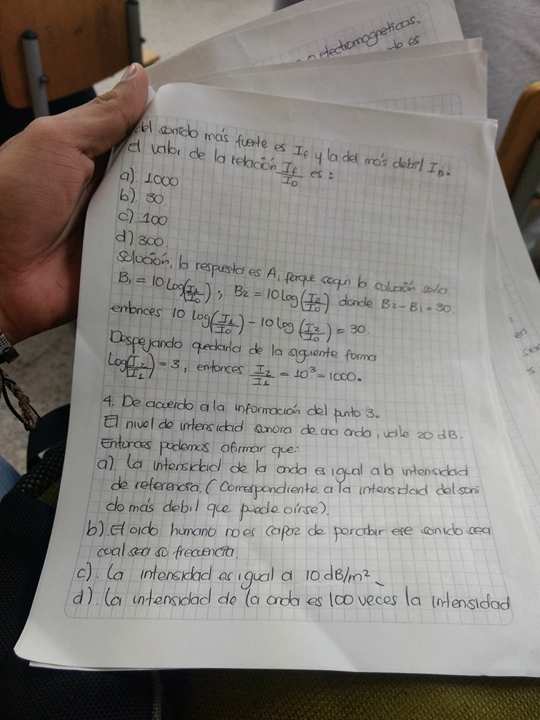 electromagneticas.
to es
del sonido más fuerte es If y la del más debil ID.
el valor de la relación If/ID es:
a) 1000
b) 30
c) 100
d) 300
Solución, la respuesta es A, porque según la solución sería
B1 = 10 Log(I1/I0), B2 = 10 log(I2/I0) donde B2 - B1 = 30
entonces 10 log(I1/I0) - 10 log(I2/I0) = 30.
Despejando quedaría de la siguiente forma
Log(I2/I1) = 3, entonces I2/I1 = 10³ = 1000.
4. De acuerdo a la información del punto 3.
El nivel de intensidad sonora de una onda, vale 20 dB.
Entonces podemos afirmar que:
a) La intensidad de la onda es igual a la intensidad
de referencia. (Correspondiente a la intensidad del soni
do más debil que puede oírse).
b) El oido humano no es capaz de percibir ese sonido sea
cual sea su frecuencia.
c). La intensidad es igual a 10 dB/m²
d). La intensidad de la onda es 100 veces la intensidad